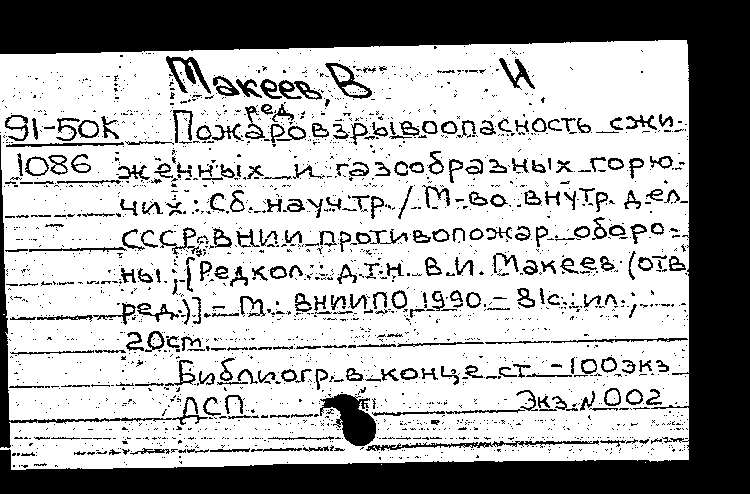 Макеев, В И.
ред.
91-50К Пожаровзрывоопасность сжи-
1086 женных и газообразных горю-
чих : Сб. науч. тр. / М-во внутр. дел
СССР, ВНИИ противопожар. оборо-
ны ; [Редкол.: д.т.н. В.И. Макеев (отв.
ред.)]. - М. : ВНИИПО, 1990. - 81с. : ил. ;
20 cm.
Библиогр. в конце ст. - 100 экз
ДСП. Экз. N 002